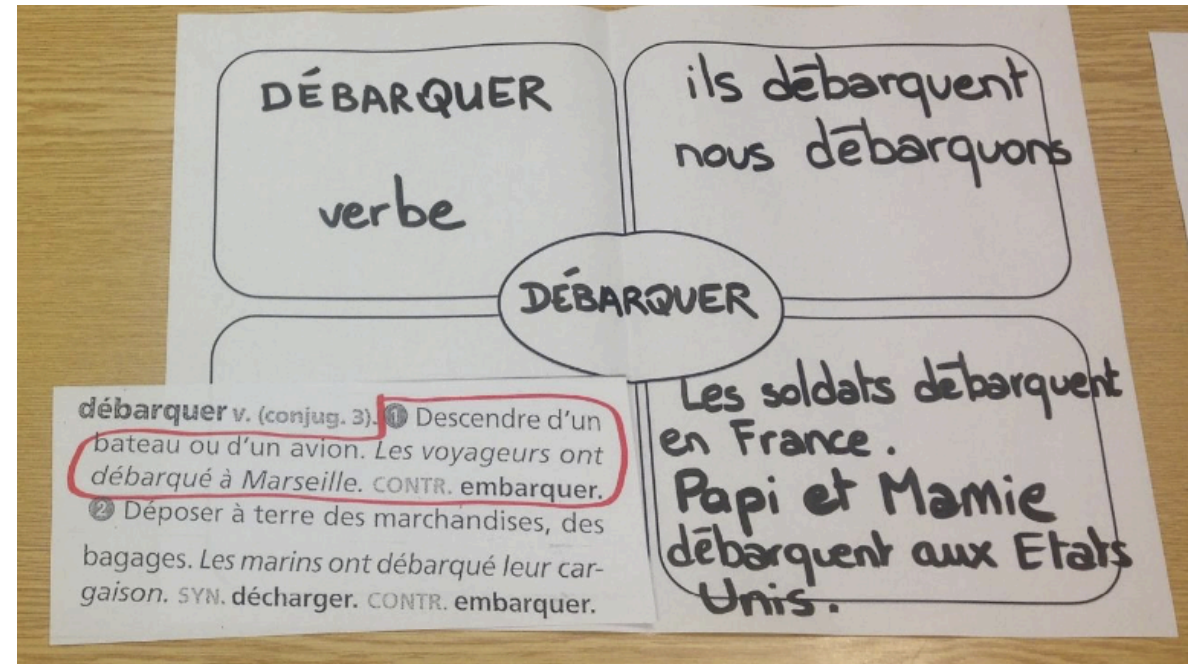 DÉBARQUER
verbe
ils débarquent
nous débarquons
DÉBARQUER
débarquer v. (conjug. 3). ❶ Descendre d'un
bateau ou d'un avion. Les voyageurs ont
débarqué à Marseille. CONTR. embarquer.
❷ Déposer à terre des marchandises, des
bagages. Les marins ont débarqué leur car-
gaison. SYN. décharger. CONTR. embarquer.
Les soldats débarquent
en France.
Papi et Mamie
débarquent aux Etats
Unis.